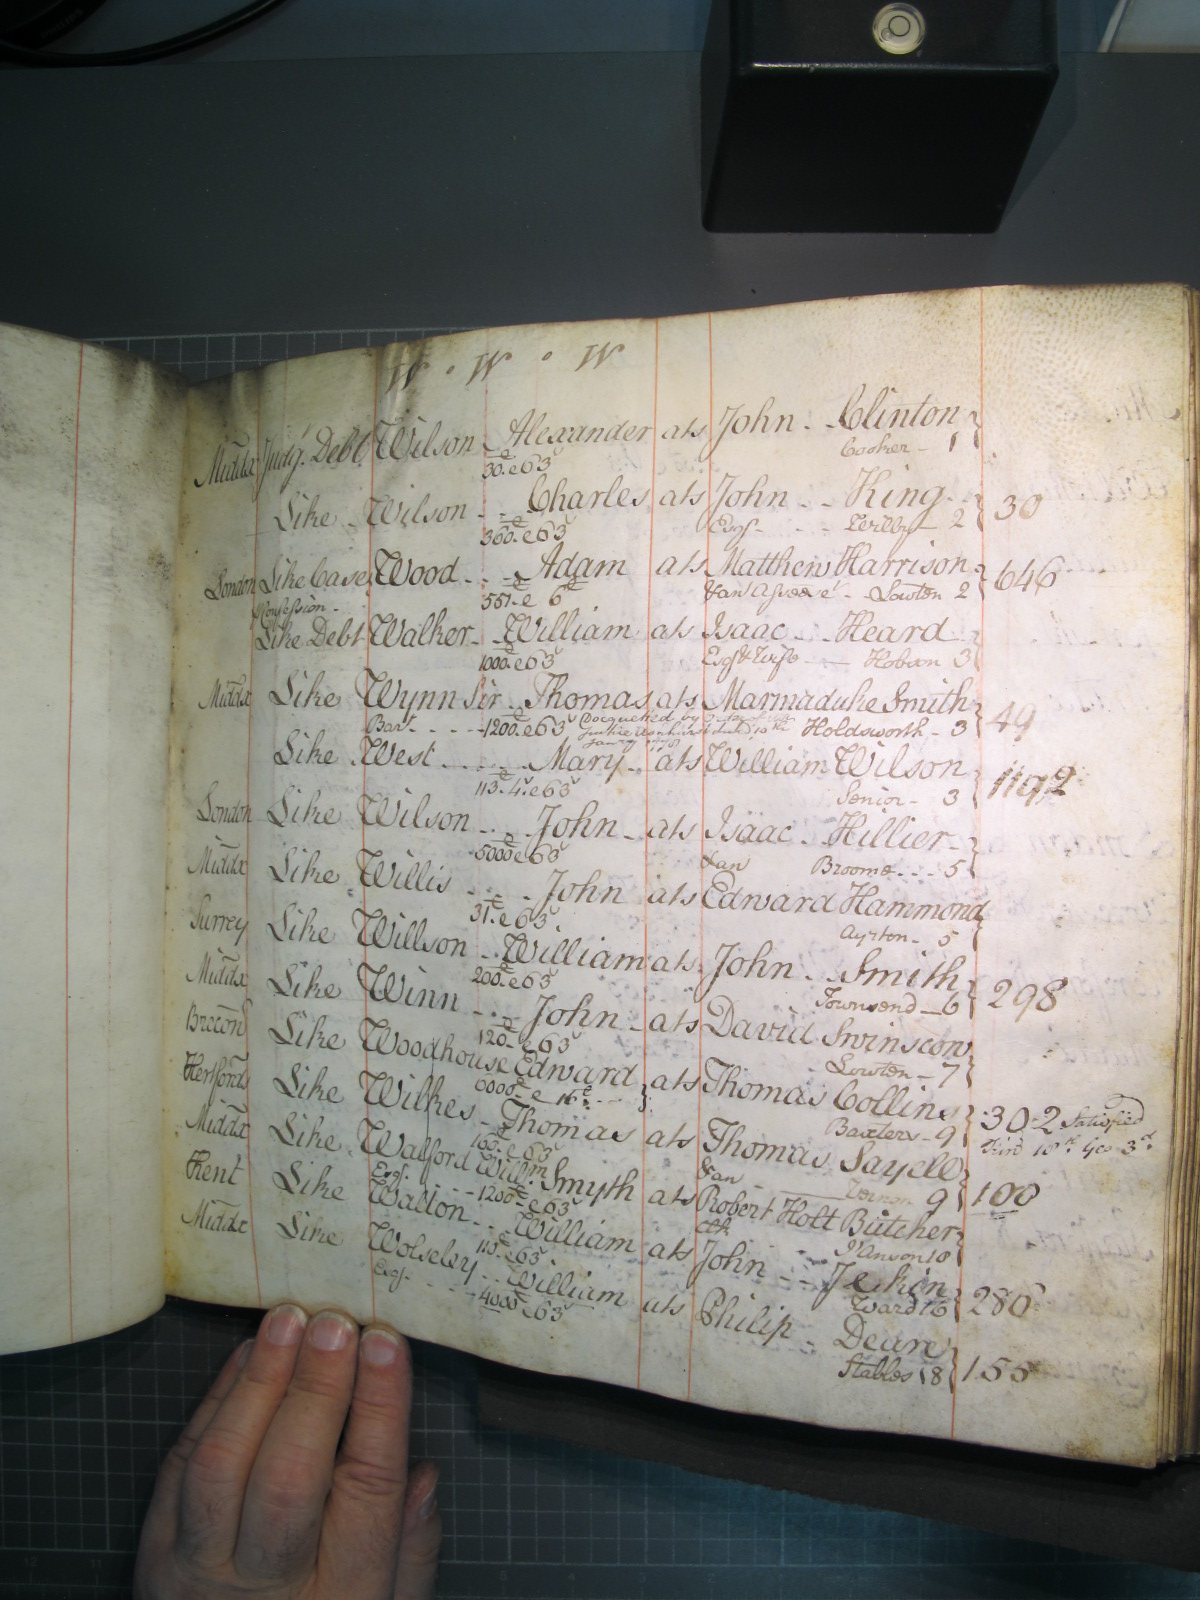 W . W . W
Middx Judg. Debt Wilson Alexander ats John Clinton
30. e 63s Cooker 1
Like Wilson Charles ats John King 30
360. e 63s Esqr. Willby 2
London Like Case Wood Adam ats Matthew Harrison 646
Confession 551. e 6 Lowten 2
Like Debt Walker William ats Isaac Heard
1000. e 63s Esqr & Wife Hobson 3
Middx Like Wynn Sir Thomas ats Marmaduke Smith 49
Bart. 1200. e 63s Docqueted by Holdsworth 3
Like West Mary ats William Wilson 1192
113. 4s e 63s Senior 3
London Like Wilson John ats Isaac Hillier
5000 e 63s & an Broome 5
Middx Like Willis John ats Edward Hammond
31. e 63s Ayrton 5
Surrey Like Willson William ats John Smith 298
200. e 63s Townsend 6
Middx Like Winn John ats David Swinscow
120. e 63s Lowten 7
Brecon Like Woodhouse Edward ats Thomas Collins 302 Satisfied
6000 e 16 Baxters 9
Hertford Like Wilkes Thomas ats Thomas Sayell 100
160. e 63s & an Vernon 9
Middx Like Walford Willm Smyth ats Robert Holt Butcher
Esqr. 1200 e 63s I'Anson 10
Kent Like Walton William ats John Jeken 280
113. e 63s Ward 16
Middx Like Wolseley William ats Philip Deare 155
Esqr. 4000 e 63s Stables 18